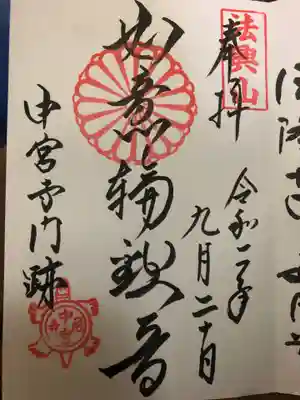 法興山
奉拝
令和二年
九月二十日
如意輪観音
中宮寺門跡